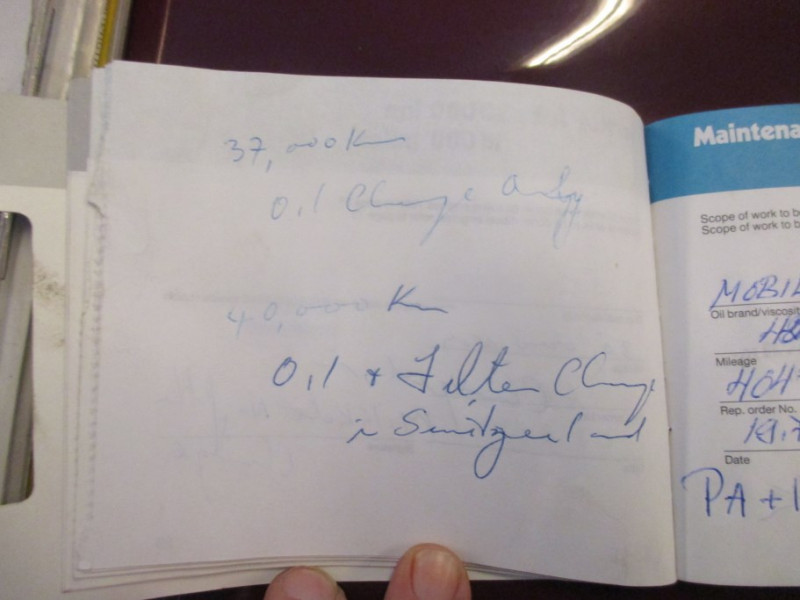 37,000 Km
Oil Change Only
40,000 Km
Oil + Filter Change
in Switzerland
Maintena
Scope of work to be
Scope of work to b
MOBIL
Oil brand/viscosit
Mileage
Rep. order No.
Date
PA +